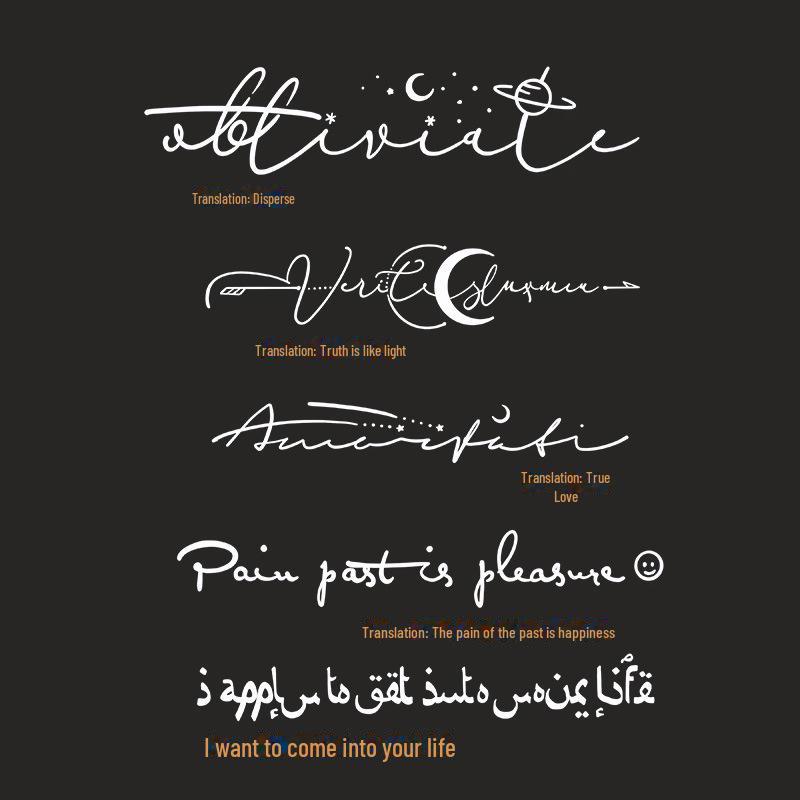 obliviate
Translation: Disperse
Veritasluxmea
Translation: Truth is like light
Amor fati
Translation: True
Love
Pain past is pleasure
Translation: The pain of the past is happiness
I want to come into your life